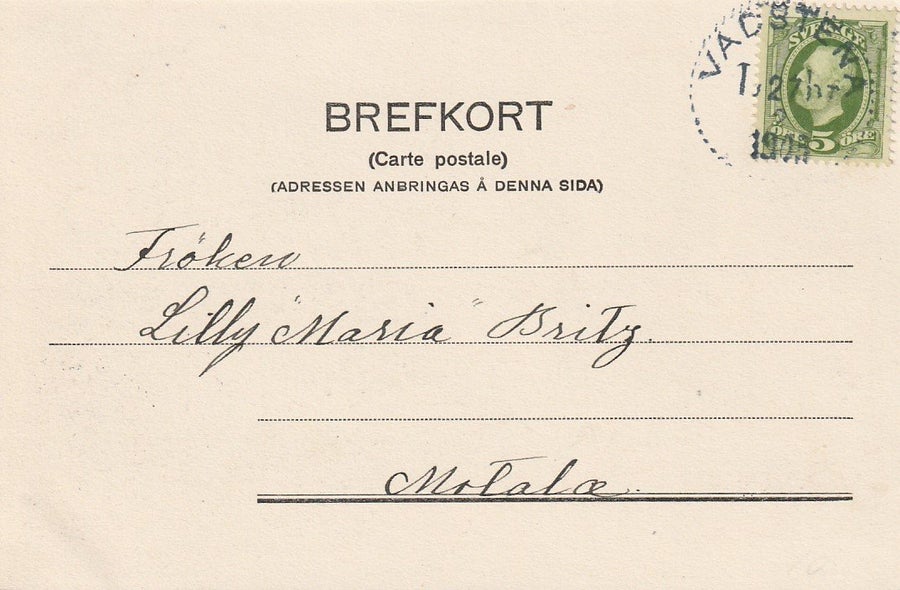 VADSTENA
SVERIGE
5 ÖRE
BREFKORT
(Carte postale)
(ADRESSEN ANBRINGAS Å DENNA SIDA)
Fröken
Lilly "Maria" Britz.
Motala